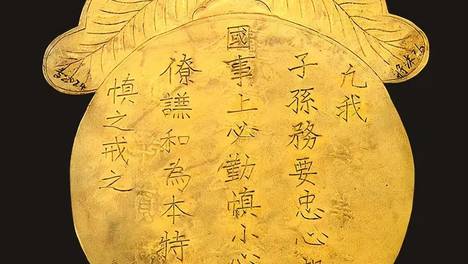 凡我
子孫務要忠心
國事上必勤慎小心
僚謙和為本特
慎之戒之